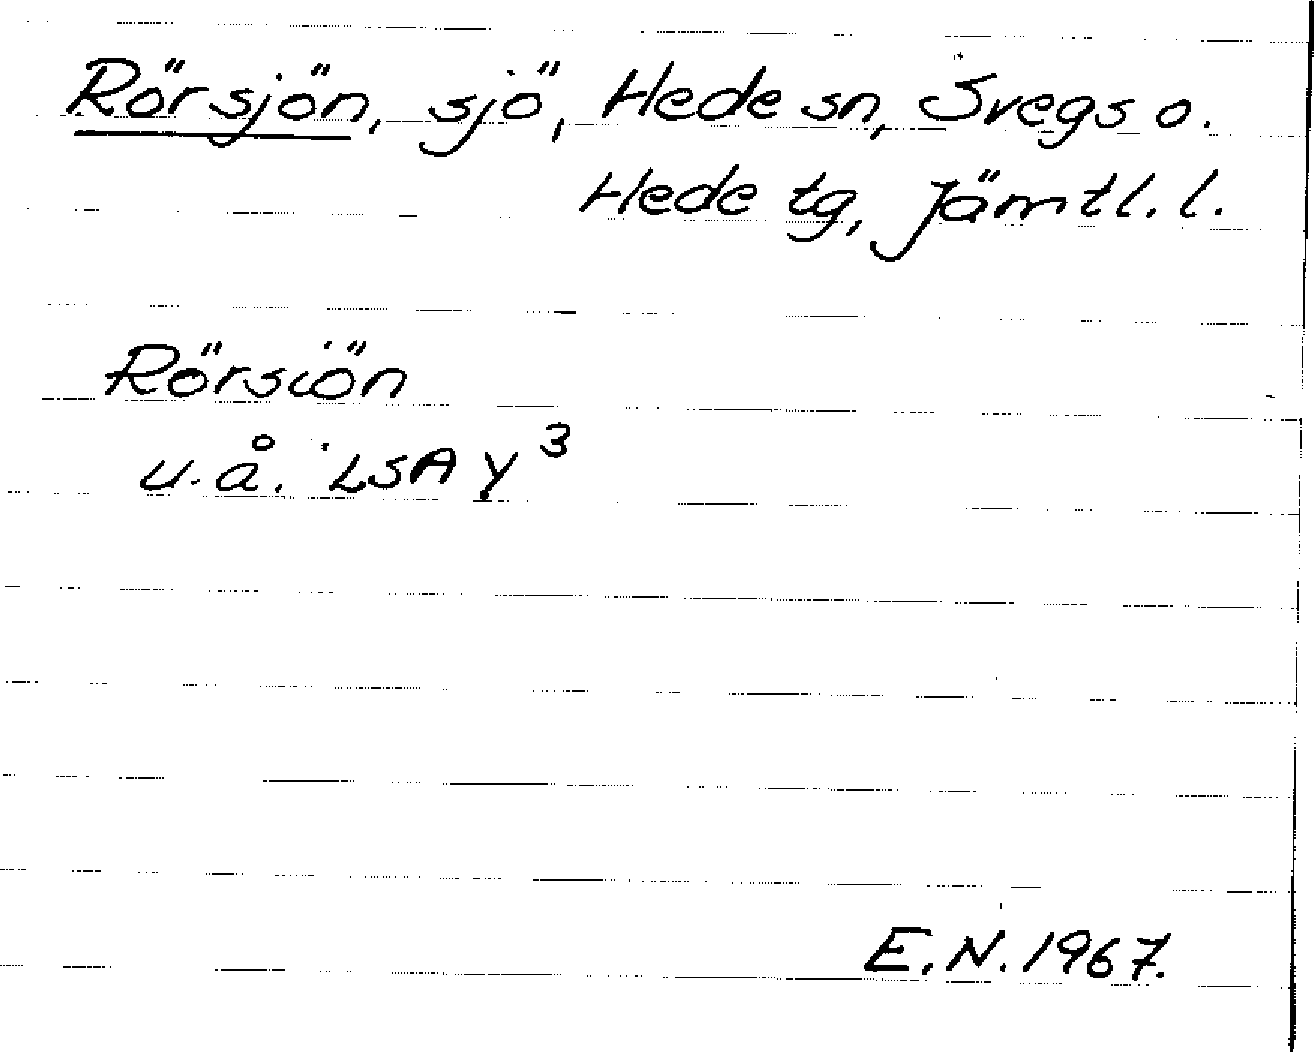 Rörsjön, sjö, Hede sn, Svegs o.
Hede tg, Jämtl. l.
Rörsiön
u. å. LSA Y³
E.N. 1967.